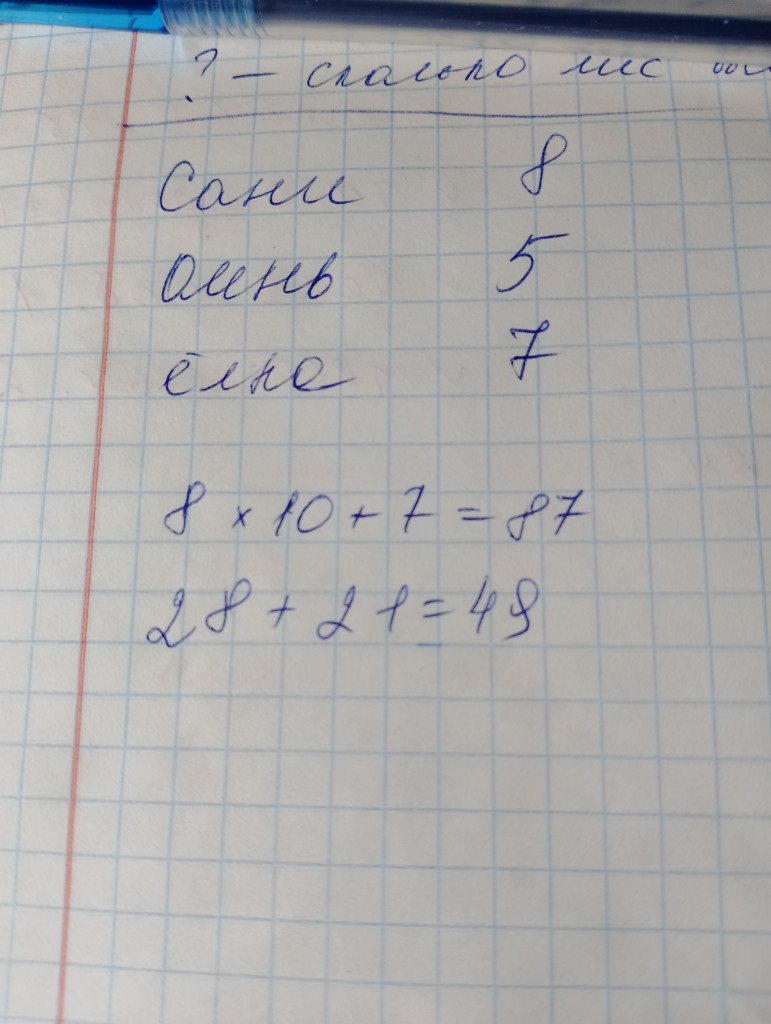 ? — сколько лис
Сани 8
олень 5
ёлка 7
8 × 10 + 7 = 87
28 + 21 = 49